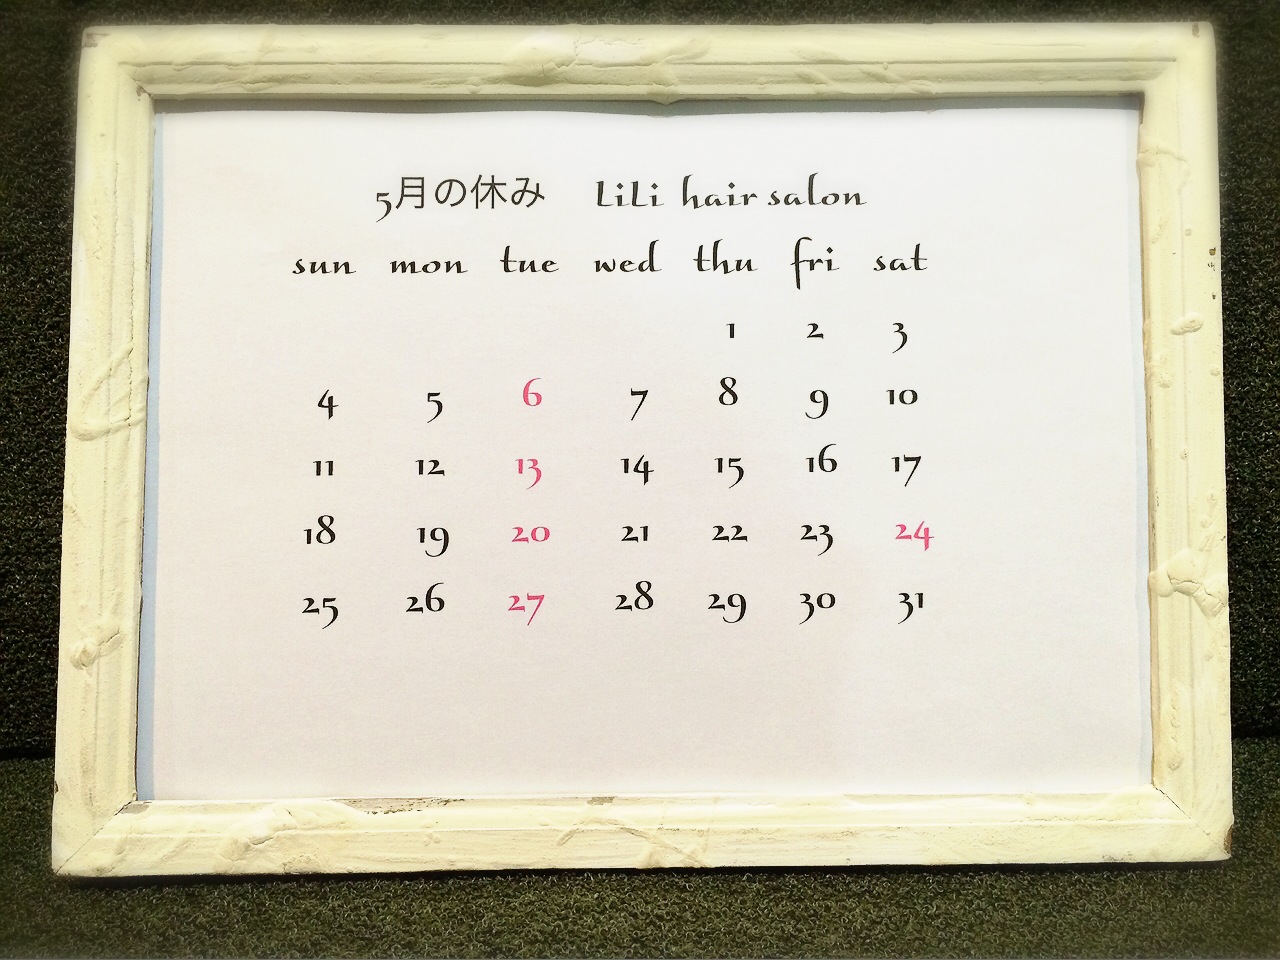 5月の休み LiLi hair salon
sun mon tue wed thu fri sat
1 2 3
4 5 6 7 8 9 10
11 12 13 14 15 16 17
18 19 20 21 22 23 24
25 26 27 28 29 30 31